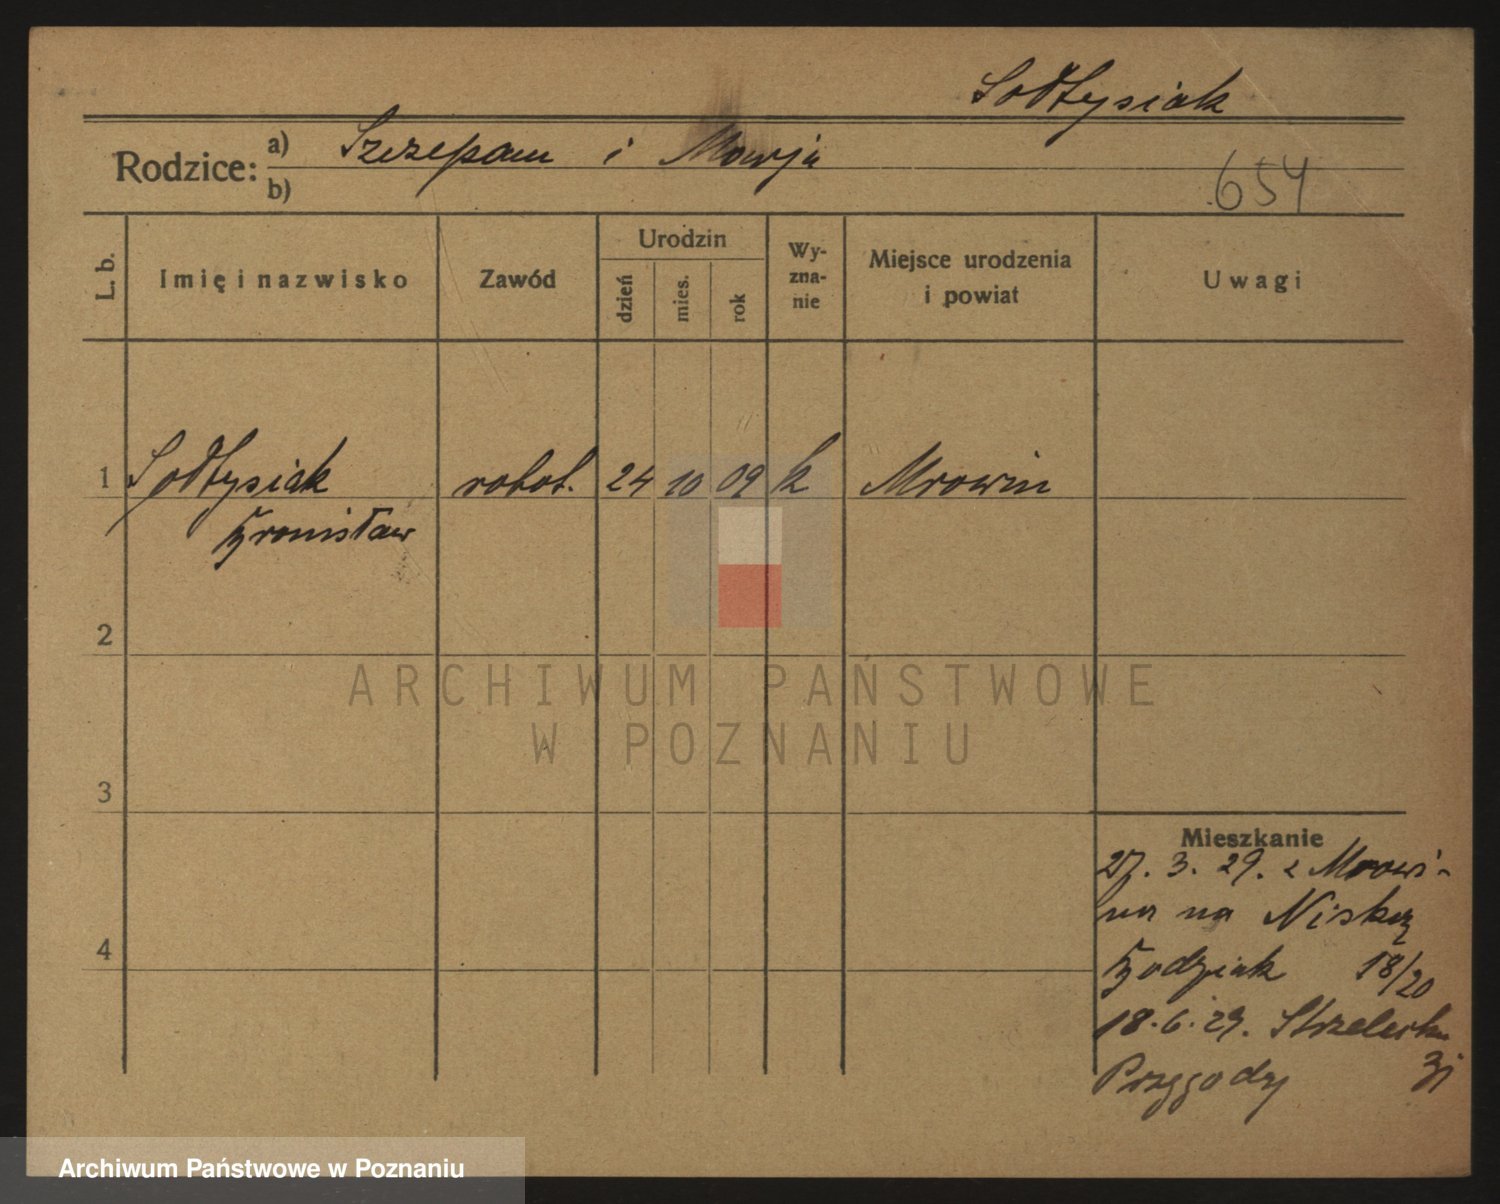 Sołtysiak
Rodzice: a) Szczepan i Marja
b)
654
L. b.
Imię i nazwisko
Zawód
Urodzin
dzień
mies.
rok
Wy-
zna-
nie
Miejsce urodzenia
i powiat
Uwagi
1 Sołtysiak robot. 24 10 09 k Mrowin
Bronisław
2
ARCHIWUM PAŃSTWOWE
W POZNANIU
3
Mieszkanie
27. 3. 29. z Mrowi-
na na Niską
4
Bodziak 18/20
18. 6. 29. Strzelecka
Przygody 31
Archiwum Państwowe w Poznaniu